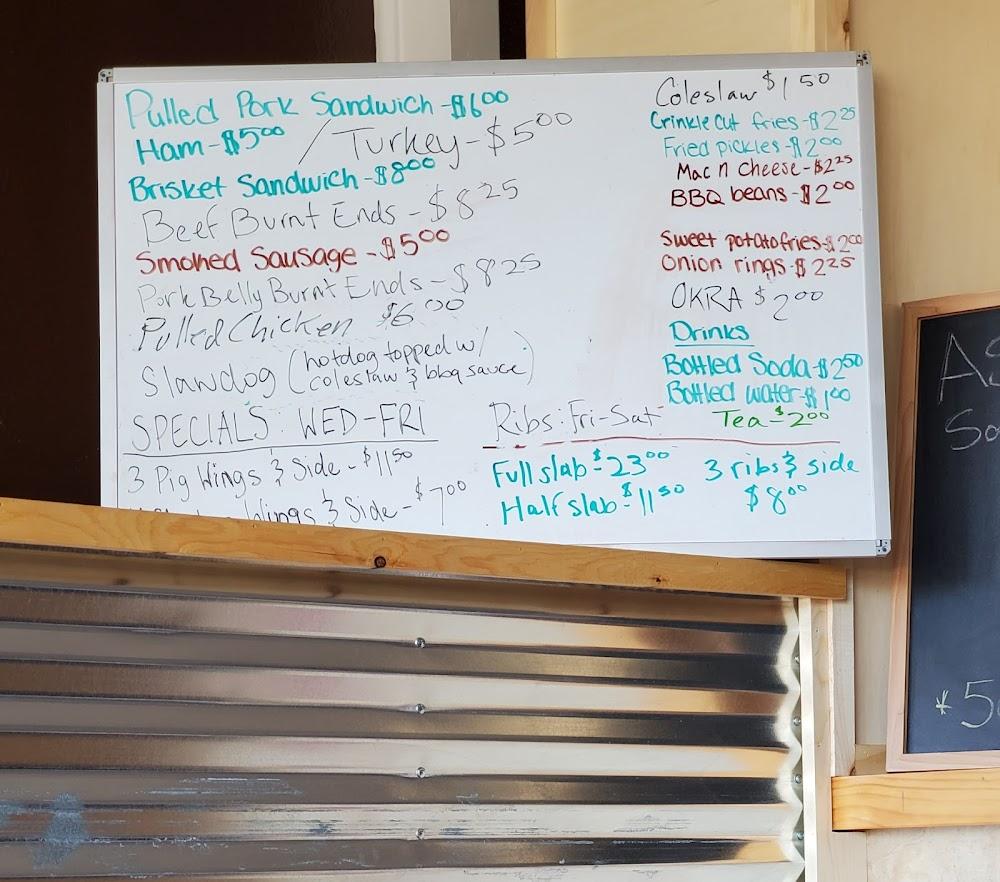 Pulled Pork Sandwich - $6.00
Ham - $5.00 / Turkey - $5.00
Brisket Sandwich - $8.00
Beef Burnt Ends - $8.25
Smoked Sausage - $5.00
Pork Belly Burnt Ends - $8.25
Pulled Chicken $6.00
Slawdog (hotdog topped w/
coleslaw & bbq sauce)
SPECIALS: WED-FRI
3 Pig Wings & Side - $11.50
Wings & Side - $7.00
Ribs: Fri-Sat
Full slab - $23.00
Half slab - $11.50
3 ribs & side
$8.00
Coleslaw $1.50
Crinkle cut fries - $2.25
Fried pickles - $2.00
Mac n Cheese - $2.25
BBQ beans - $2.00
Sweet potato fries - $2.00
Onion rings - $2.25
OKRA $2.00
Drinks
Bottled Soda - $2.50
Bottled water - $1.00
Tea - $2.00